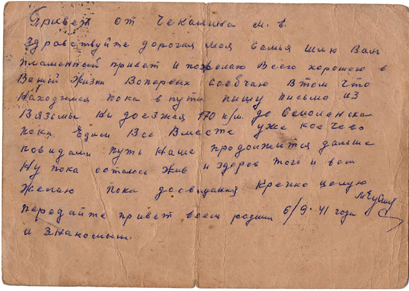 Привет от Чекалина М. В.
Здравствуйте дорогая моя семья шлю Вам
пламенный привет и пожелаю Всего хорошего в
Вашей жизни Вопервых сообчаю Втом что
Находимся пока в пути пишу письмо из
Вязьмы не доезжая 170 к/м. до Смоленска
пока Едим Все Вместе уже кое чево
повидали путь Наше продолжится дальше
Ну пока остаюсь жив и здоров того и вам
желаю пока досвидания Крепко целую
передайте привет всем родным 6/9-41 года
и знакомым.